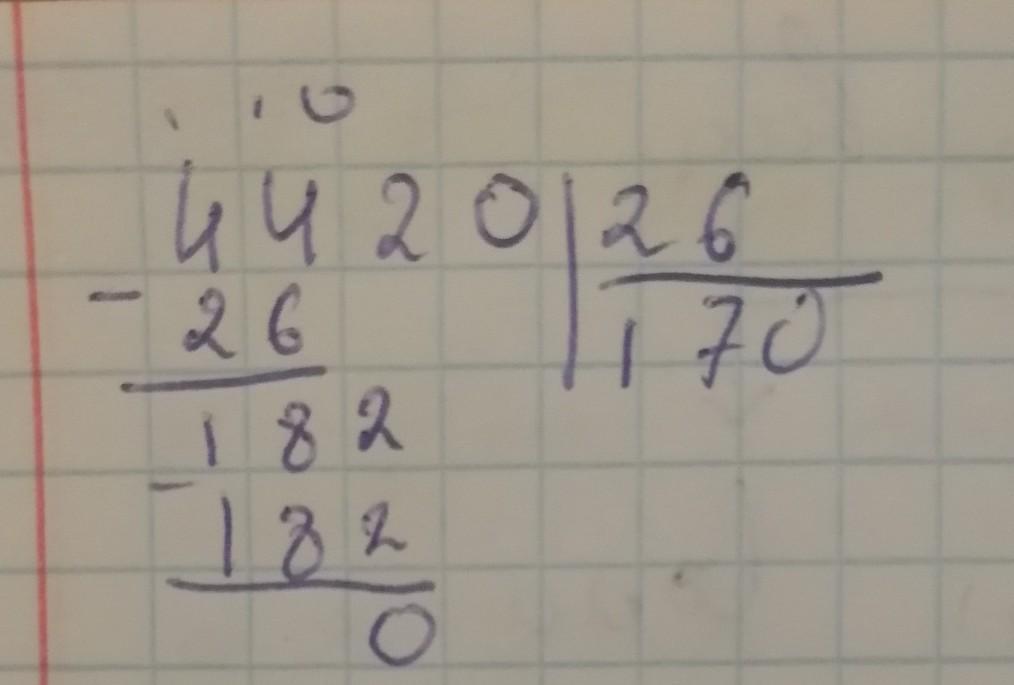 . . 0
4420 | 26
- 26 | 170
182
- 182
0